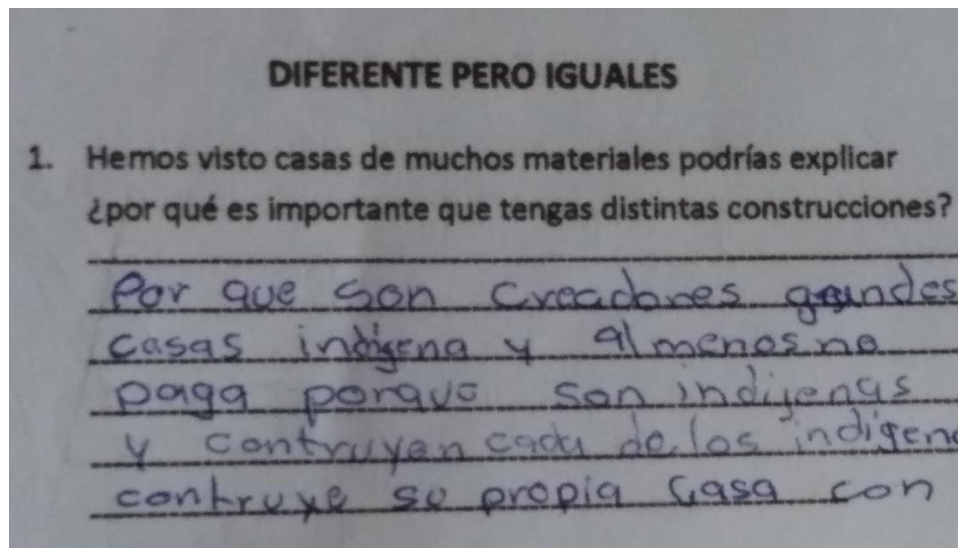 DIFERENTE PERO IGUALES
1. Hemos visto casas de muchos materiales podrías explicar
¿por qué es importante que tengas distintas construcciones?
Por que son creadores grandes
casas indígena y al menos no
paga porque son indijenas
y contruyen cada de los indigena
contruye su propia casa con